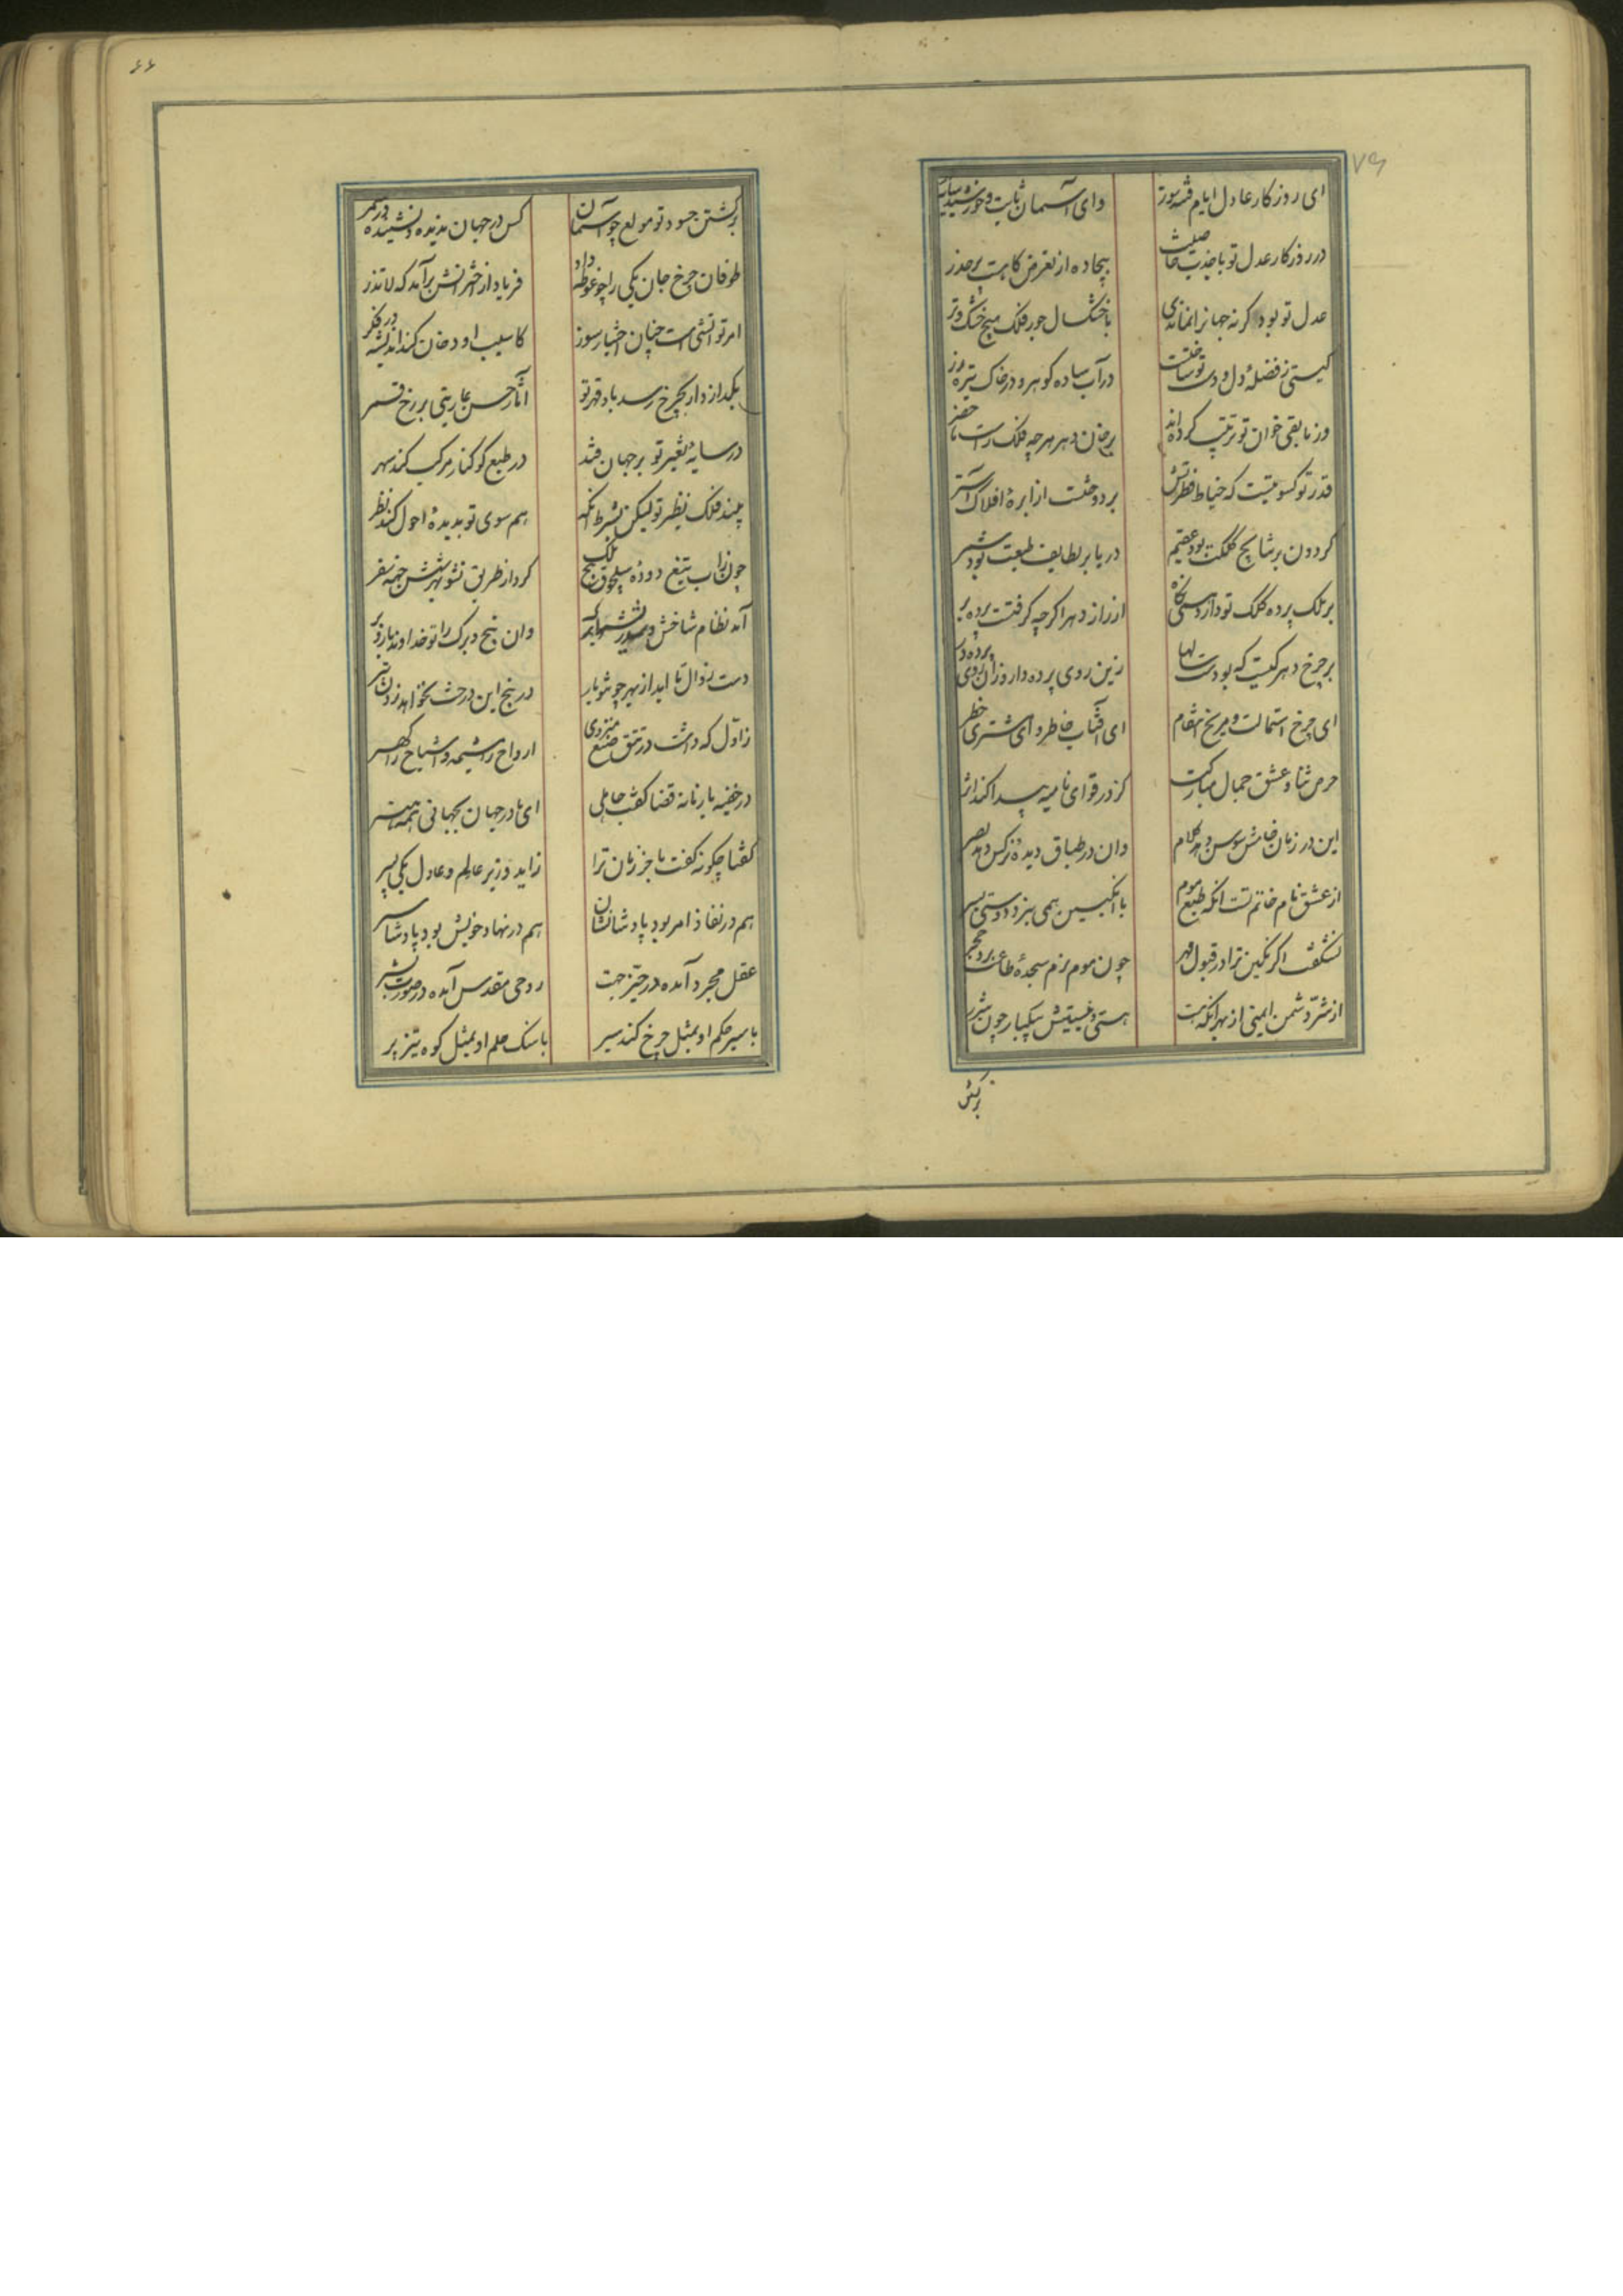 ای روزکار عادل ایام فتنه سوز
وای آسمان ثابت وخورشید سایه
در روزکار عدل تو با جذب خاصیت
بیجاده از تعرض کاهست برحذر
عدل تو بود کرنه جهانرا نماندی
با خشکسال جور فلک هیچ خشک وتر
کیتی ز فضلهٔ دل ودست تو ساخت
در آب ساده کوهر و در خاک تیره زر
وز مابقی خوان تو ترتیب کرده اند
بر خوان دهر هرچه فلک راست ماحضر
قدر تو کسوتیست که خیاط فطرتش
بر دوختست از ابرهٔ افلاک آستر
کردون بر نتایج کلکت بود عقیم
دریا بر لطایف طبعت بود شمر
بر ملک پرده کلک تو دارد همی نکاه
از راز دهر اکرچه کرفتست پرده بر
بر چرخ دهر کیست که بودست سالها
زین روی پرده دار وزان روی پرده در
ای چرخ استمالت و مریخ انتقام
ای آفتاب خاطر و ای مشتری خطر
حرص ثنا وعشق جمال مبارکت
کز در قوای نامیه پیدا کند اثر
این در زبان خامش سوسن دهد کلام
وان در طباق دیدهٔ نرکس دهد بصر
از عشق نام خاتم تست انکه طبع موم
با انکبین همی نبرد دوستی بسر
نشکفت اکر نکین ترا در قبول مهر
چون موم نرم سجدهٔ طاعت برد حجر
از شر دشمن ایمنی از بهر انکه هست
هستی ونیستیش بیکبار چون شرر
برکشتن
۶۶
برکشتن حسود تو مولع چو آسمان
کس در جهان ندیده ونشنیده در سمر
طوفان چرخ جان یکی را چو غوطه داد
فریاد از اخترانش برآمد که لا تذر
امر تو آتشی است چنان اختیار سوز
کاسیب او دخان کند اندیشه در فکر
بکدازد ار بچرخ رسد باد قهر تو
آثار حسن عاریتی بر رخ قمر
در سایهٔ تغیر تو بر جهان فتد
در طبع کوکنار مرکب کند سهر
بیند فلک نظیر تو لیکن بشرط انکه
هم سوی تو بدیدهٔ احول کند نظر
چون زاب تیغ دودهٔ سلجوق بیخ ملک
کرد از طریق نشو بهر شش جهه سفر
آمد نظام شاخش و صدر شهید برک
وان بیخ وبرک را تو خداوند بارور
دست زوال تا ابد از بهر چونتو بار
در بیخ این درخت نخواهد زدن تبر
زاول که داشت در تتق صنع منزوی
ارواح را مشیمه و اشباح را کهر
در خفیه با زمانه قضا کفت حاملی
ای مادر جهان بجهانی همه هنر
کفتا چکونه کفت باخر زمان ترا
زاید وزیر عالم وعادل یکی پسر
هم در نفاذ امر بود پادشانشان
هم در نهاد خویش بود پادشا سیر
عقل مجرد آمده در حیز جهت
روحی مقدس آمده در صورت بشر
با سیر حکم او بمثل چرخ کند سیر
با سنک حلم او بمثل کوه تیز پر